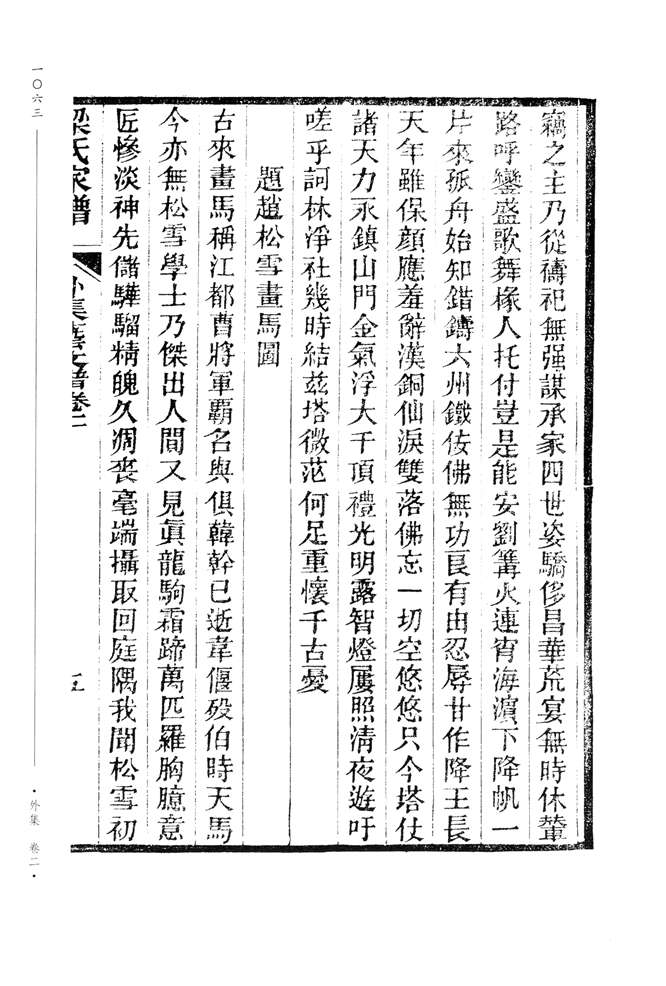 竊之主乃從禱祀無强謀承家四世姿驕侈昌華荒宴無時休輦
路呼鑾盛歌舞椽人托付豈是能安劉篝火連宵海濵下降帆一
片來孤舟始知錯鑄六州鐵佞佛無功良有由忍辱甘作降王長
天年雖保顔應羞辭漢銅仙淚雙落佛忘一切空悠悠只今塔仗
諸天力永鎮山門金氣浮大千頂禮光明露智燈屢照清夜遊吁
嗟乎訶林淨社幾時結兹塔微范何足重懷千古憂
題趙松雪畫馬圖
古來畫馬稱江都曹將軍霸名與俱韓幹已逝韋偃殁伯時天馬
今亦無松雪學士乃傑出人間又見眞龍駒霜蹄萬匹羅胸臆意
匠慘淡神先儲驊騮精魄久凋喪毫端攝取回庭隅我聞松雪初
梁氏家譜
外集藝文譜卷二
五
一〇六三
·外集 卷二·